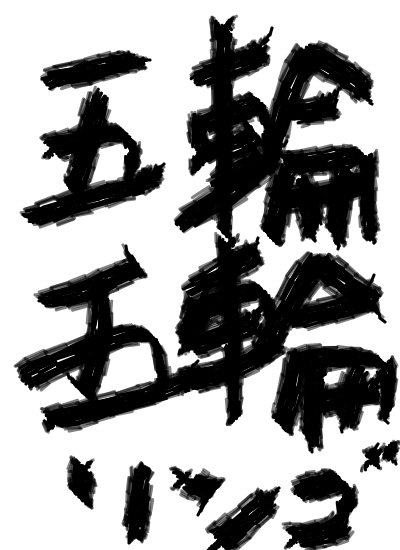 五輪
五輪
リンゴ